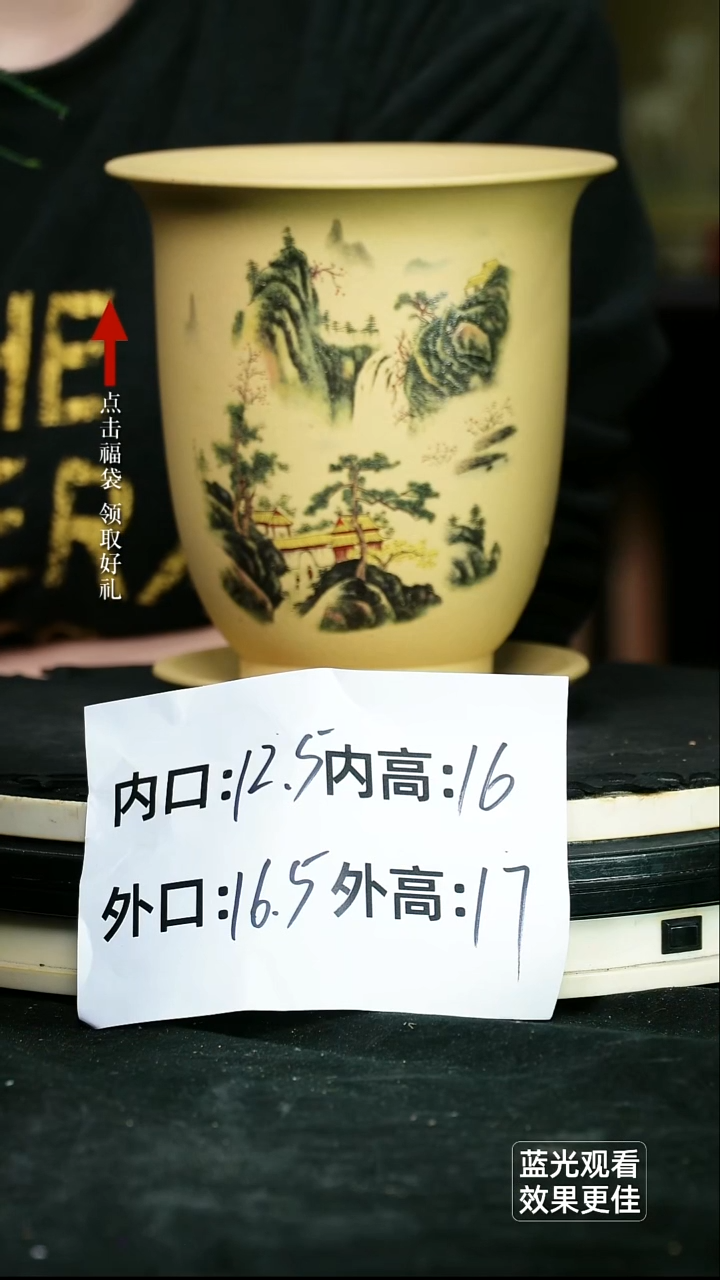 HE
ER
点击福袋 领取好礼
内口:12.5内高:16
外口:16.5外高:17
蓝光观看
效果更佳